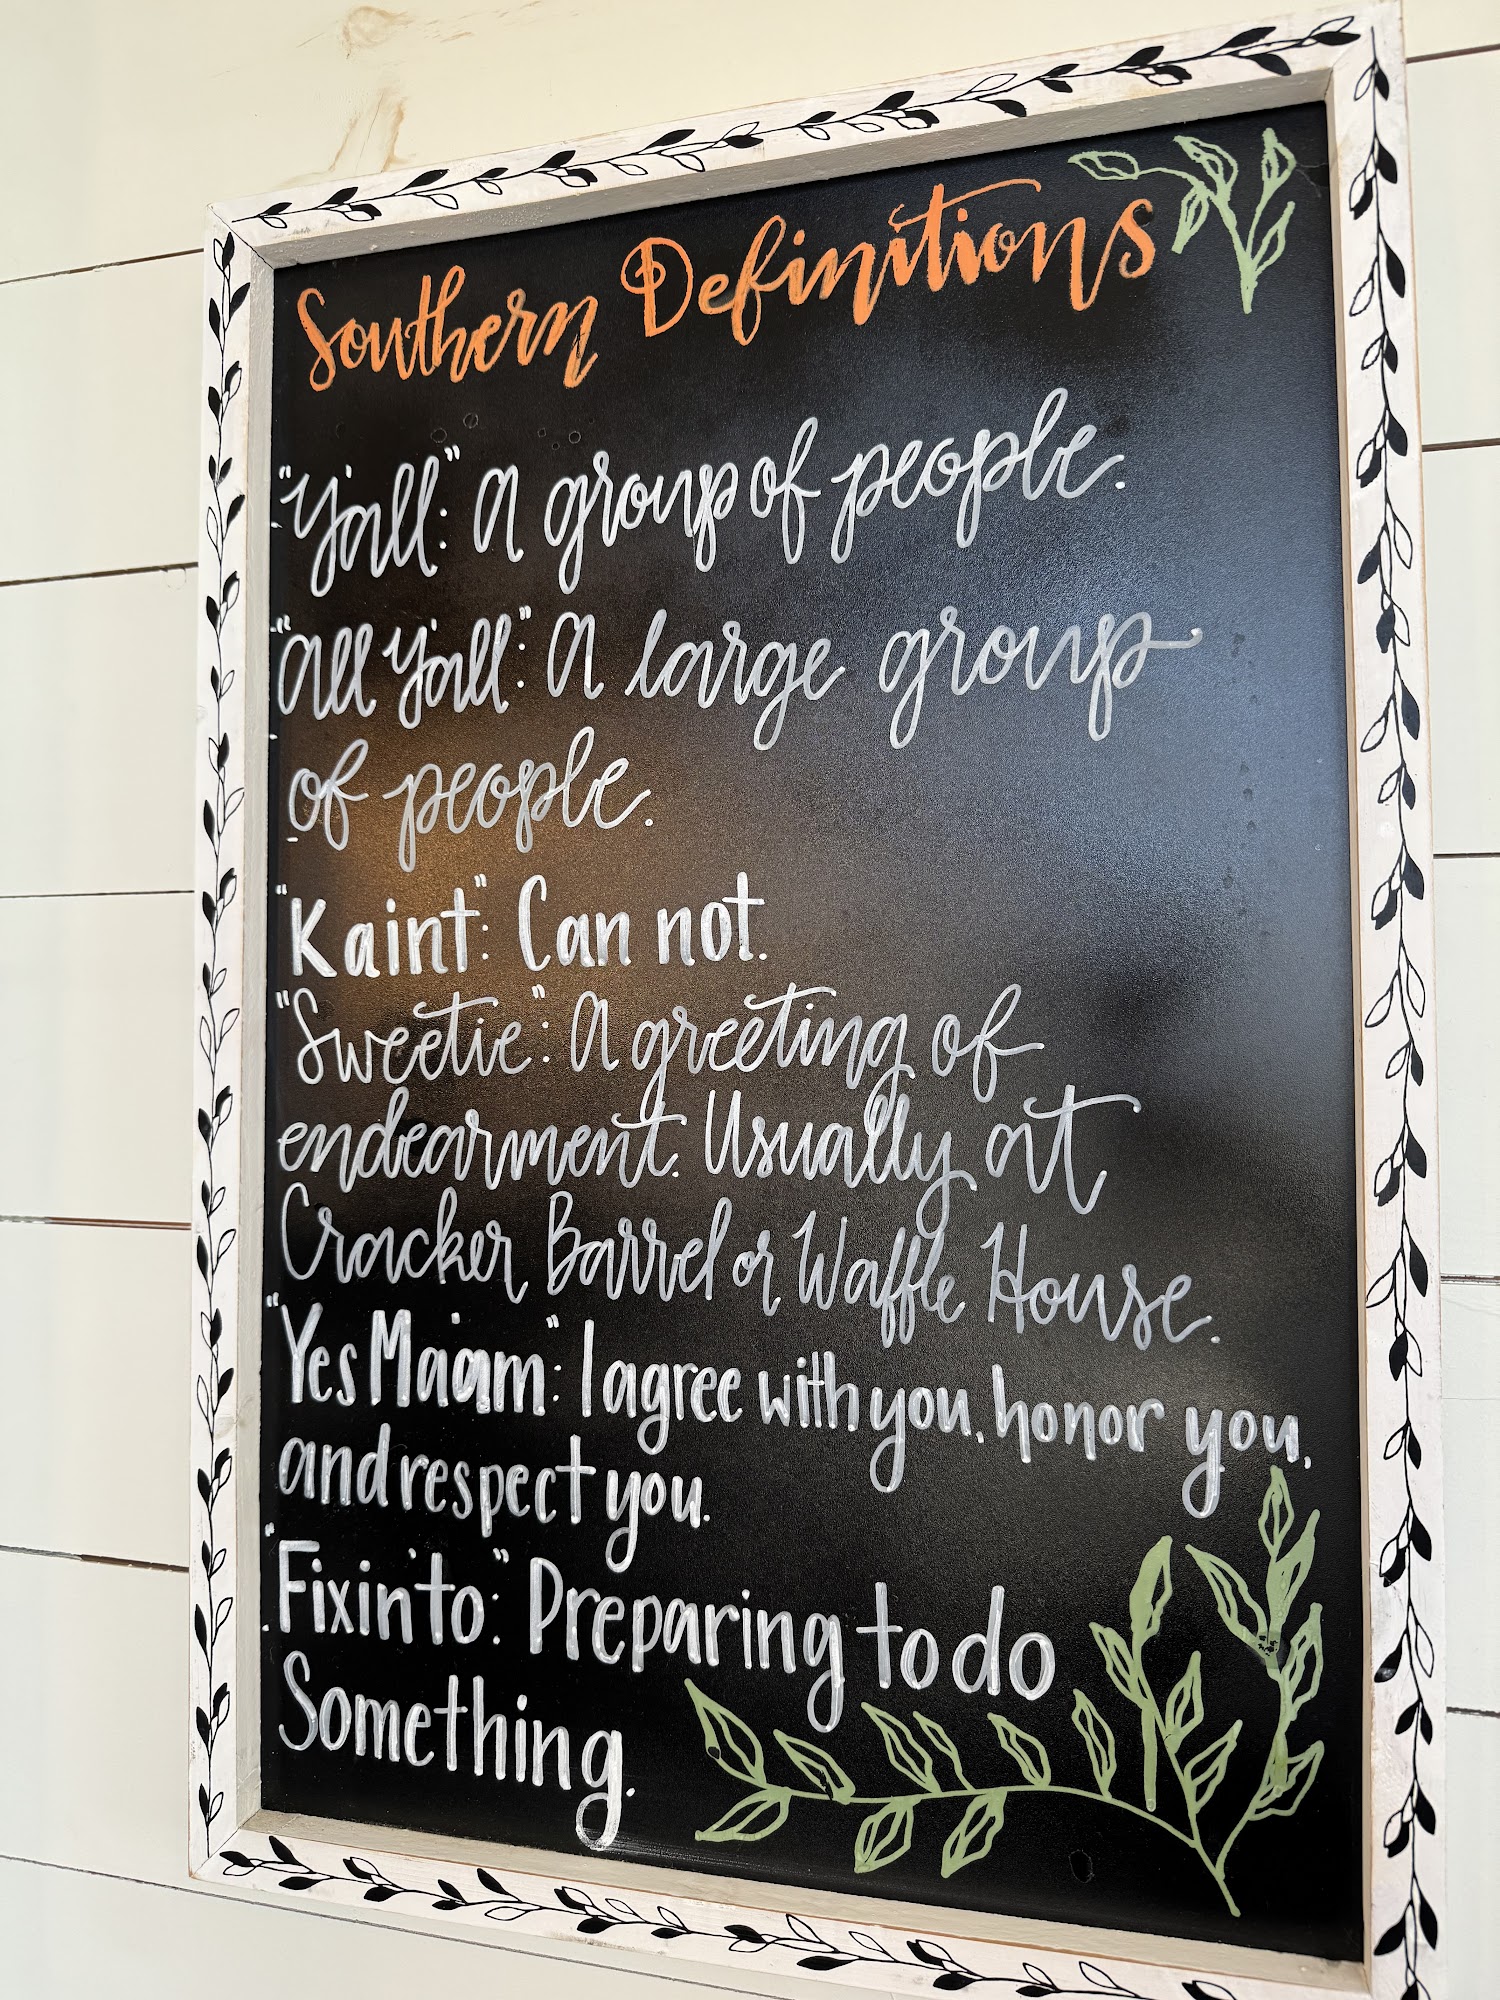 Southern Definitions
"Y'all": A group of people.
"All Y'all": A large group
of people.
"Kaint": Can not.
"Sweetie": A greeting of
endearment. Usually at
Cracker Barrel or Waffle House.
"Yes Ma'am": I agree with you, honor you,
and respect you.
"Fixin' to": Preparing to do
Something.